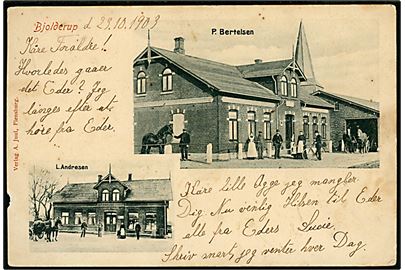 Bjolderup d 23.10.1903
P. Bertelsen
Kære Forældre!
Hvorledes gaaer
det Eder? Jeg
længes efter at
høre fra Eder.
Verlag A. Just, Flensburg.
I. Andresen
Kære lille Aage jeg mangler
Dig. Nu venlig Hilsen til Eder
alle fra Eders
Skriv snart, jeg venter hver Dag.